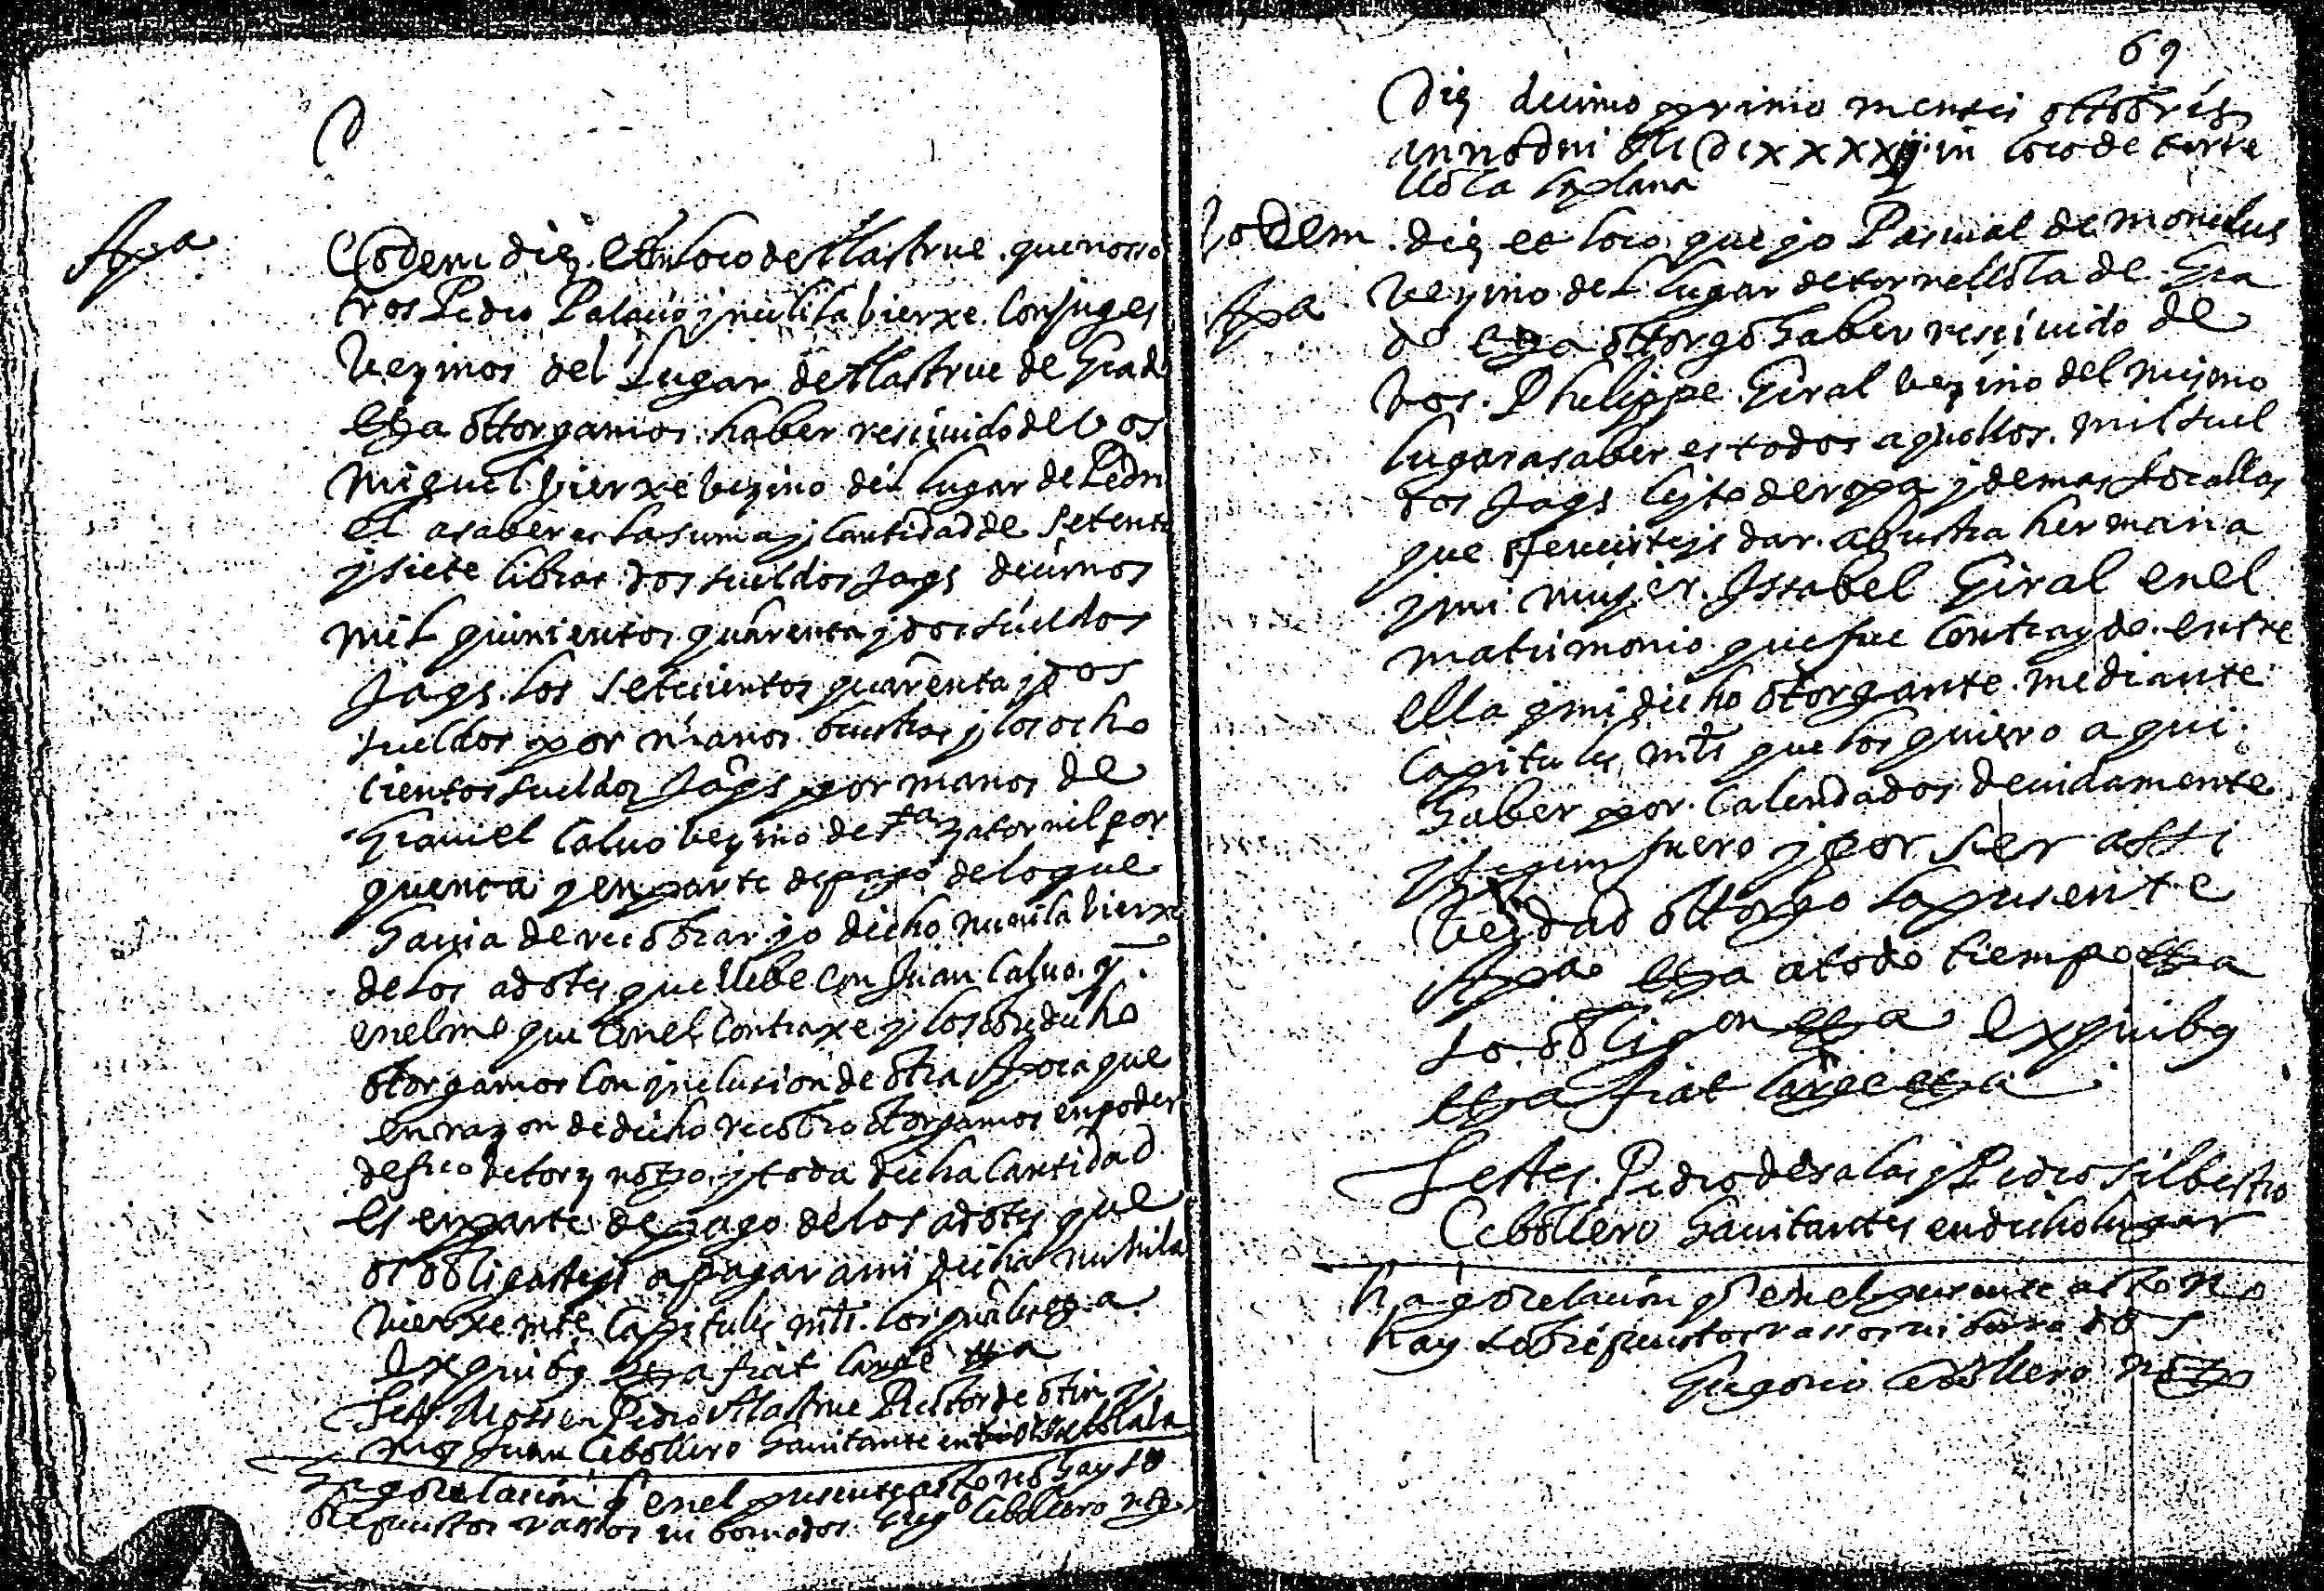 Apa
Eodem die et in loco de Allastrue que noso
tros Pedro Palacio y nulila bierxe Conjuges
Vezinos del Lugar de Allastrue de Grado
etta ottorgamos haber resciuido de vos
Miguel bierxe bezino del lugar de Pedru
el asaber es la suma y Cantidad de Setenta
y siete libras dos sueldos Jaqs deuimos
mil quinientos quarenta y dos sueldos
Jaqs. los Setecientos quarenta y dos
sueldos por manos bustras y los ocho
cientos sueldos Jaqs por manos de
Graviel Calvo bezino de sta zatornil por
quenta y en parte de pago de lo que
hauia de recobrar yo dicho nunila bierxe
de los adotes que llebe con Juan Calvo q.
en el mo que con el Contraxe y los dicho
otorgamos Con ynclusion de otra Apoca que
en razon de dicho recobro otorgamos en poder
de fco de tory notro y toda dicha Cantidad
es en parte de pago de los adotes que
os obligasteys a pagar a mi dicha nunila
Vierxe mte Capitules mtls. los quales etta
Ex quibus etta fiat large etta
Tess. Mossen Pedro Allastrue Rector de otin y
Mos Juan Cebollero hauitante en
hago relacion q en el presente acto no hay so
brepuestos rassos ni borrados. Grego Cebollero notro
69
Die decimo primo mensis ottobris
anno dni MDCXXXXII in loco de torre
llola la plana
Eodem die et loco que yo Pascual de Moncelus
Apa
Vezino del lugar de torrellola de Gra
do etta ottorgo haber resciuido de
Vos. Phelippe Giral bezino del mismo
Lugar a saber es todos aquellos mil suel
dos Jaqs lecho de ropa y demas Jocallas
que ofrecisteys dar a bustra hermana
y mi mujer Issabel Giral en el
matrimonio que fue Contraydo entre
ella y mi dicho otorgante mediante
Capitules mtls que los quiero aqui
haber por Calendados deuidamente
y segun fuero y por ser assi
Verdad ottorgo la presente
Apa etta a todo tiempo etta
so obligon etta Ex quibus
etta fiat large etta
Testes Pedro de salas y Pedro silbestro
Cebollero hauitantes en dicho lugar
hago relacion q en el presente acto no
hay sobrepuestos rassos ni borrados
Gregorio Cebollero notro